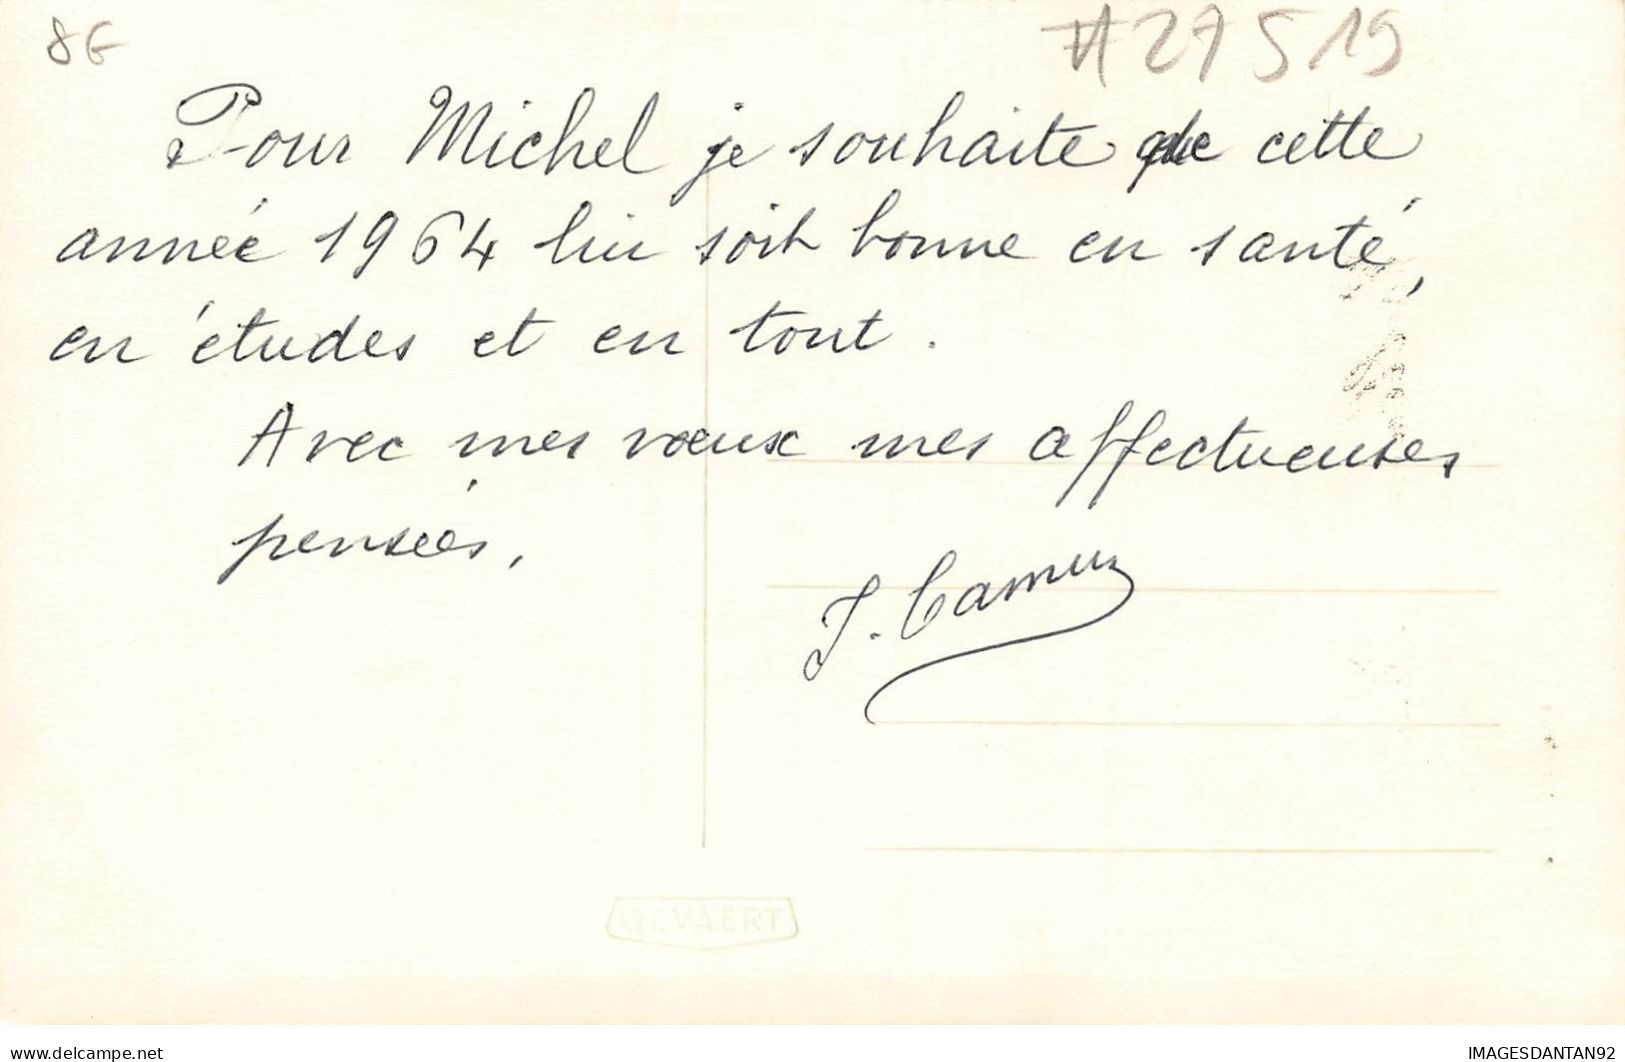 8€
#27519
Pour Michel je souhaite que cette
année 1964 lui soit bonne en santé,
en études et en tout.
Avec mes vœux mes affectueuses
pensées,
J.
GEVAERT
delcampe.net
IMAGESDANTAN92